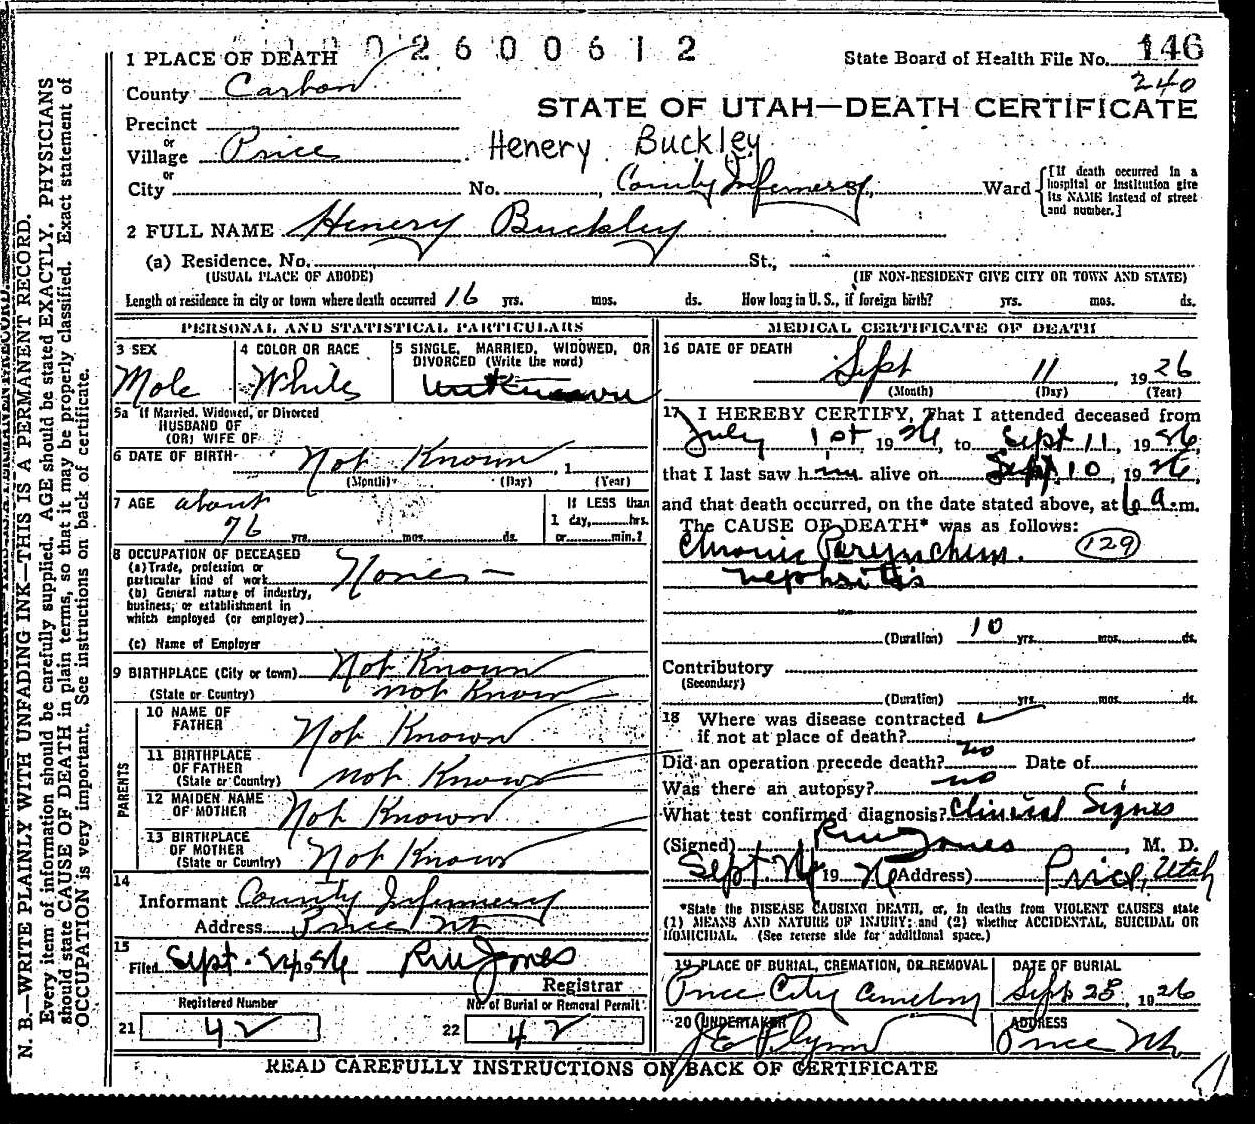 0002600612
1 PLACE OF DEATH
State Board of Health File No. 146
County Carbon
240
STATE OF UTAH—DEATH CERTIFICATE
Precinct
or
Village Price
Henery Buckley
or
City No. , County Infermery, Ward
[If death occurred in a hospital or institution give its NAME instead of street and number.]
2 FULL NAME Henery Buckley
(a) Residence. No. St.,
(USUAL PLACE OF ABODE) (IF NON-RESIDENT GIVE CITY OR TOWN AND STATE)
Length of residence in city or town where death occurred 16 yrs. mos. ds. How long in U. S., if foreign birth? yrs. mos. ds.
PERSONAL AND STATISTICAL PARTICULARS
3 SEX
Male
4 COLOR OR RACE
White
5 SINGLE, MARRIED, WIDOWED, OR
DIVORCED (Write the word)
unknown
5a If Married, Widowed, or Divorced
HUSBAND OF
(OR) WIFE OF
6 DATE OF BIRTH Not Known , 1
(Month) (Day) (Year)
7 AGE about
76 yrs. mos. ds.
If LESS than
1 day, hrs.
or min.?
8 OCCUPATION OF DECEASED
(a) Trade, profession or
particular kind of work None
(b) General nature of industry,
business, or establishment in
which employed (or employer)
(c) Name of Employer
9 BIRTHPLACE (City or town) Not Known
(State or Country) not Know
PARENTS
10 NAME OF
FATHER Not Known
11 BIRTHPLACE
OF FATHER
(State or Country) not Known
12 MAIDEN NAME
OF MOTHER Not Known
13 BIRTHPLACE
OF MOTHER
(State or Country) Not Known
14
Informant County Infermery
Address Price Ut
15
Filed Sept. 24 1926 Registrar
Registered Number
21 42
No. of Burial or Removal Permit
22 42
MEDICAL CERTIFICATE OF DEATH
16 DATE OF DEATH
Sept 11 , 1926
(Month) (Day) (Year)
17 I HEREBY CERTIFY, That I attended deceased from
July 1st 1926, to Sept 11, 1926,
that I last saw him alive on Sept 10, 1926,
and that death occurred, on the date stated above, at 6 a.m.
The CAUSE OF DEATH* was as follows:
Chronic Parynchem. 129
nephritis
(Duration) 10 yrs. mos. ds.
Contributory
(Secondary)
(Duration) yrs. mos. ds.
18 Where was disease contracted
if not at place of death?
Did an operation precede death? no Date of
Was there an autopsy? no
What test confirmed diagnosis? Clinical Signs
(Signed) Jones , M. D.
Sept 1926 (Address) Price, Utah
*State the DISEASE CAUSING DEATH, or, in deaths from VIOLENT CAUSES state
(1) MEANS AND NATURE OF INJURY; and (2) whether ACCIDENTAL, SUICIDAL OR
HOMICIDAL. (See reverse side for additional space.)
19 PLACE OF BURIAL, CREMATION, OR REMOVAL
Price City Cemetery
DATE OF BURIAL
Sept 28, 1926
20 UNDERTAKER
J E Flynn
ADDRESS
Price Ut
READ CAREFULLY INSTRUCTIONS ON BACK OF CERTIFICATE
N. B.—WRITE PLAINLY WITH UNFADING INK—THIS IS A PERMANENT RECORD.
Every item of information should be carefully supplied. AGE should be stated EXACTLY. PHYSICIANS
should state CAUSE OF DEATH in plain terms, so that it may be properly classified. Exact statement of
OCCUPATION is very important. See instructions on back of certificate.